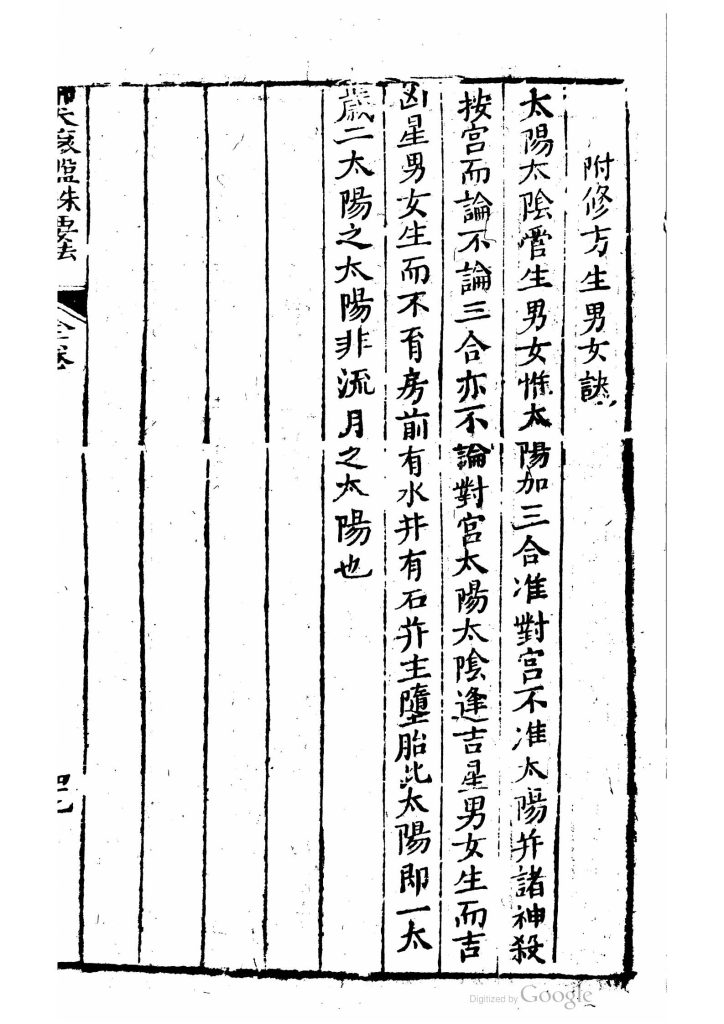 附修方生男女訣
太陽太陰管生男女惟太陽加三合准對宮不准太陽并諸神殺
按宮而論不論三合亦不論對宮太陽太陰逢吉星男女生而吉
凶星男女生而不育房前有水井有石并主墮胎此太陽即一太
歲二太陽之太陽非流月之太陽也
全卷
Digitized by Google